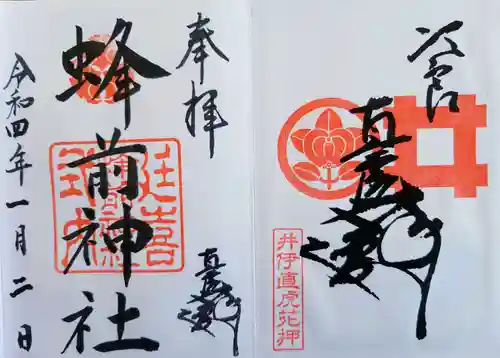 次郎
直虎
井伊直虎花押
奉拝
直虎
蜂前神社
延喜
式内
令和四年一月二日